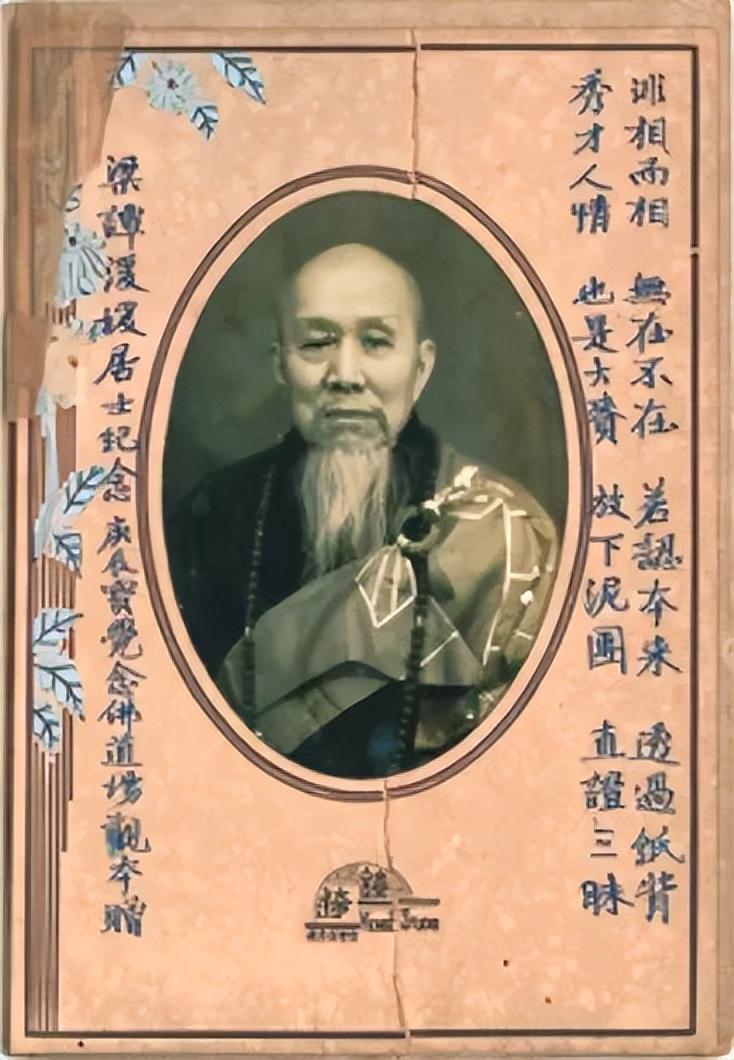 相而相　無在不在　若認本来　透過紙背
秀才人情　也是大　放下泥團　直證三昧
梁譚居士紀念　庚辰寶覺念佛道場觀本贈